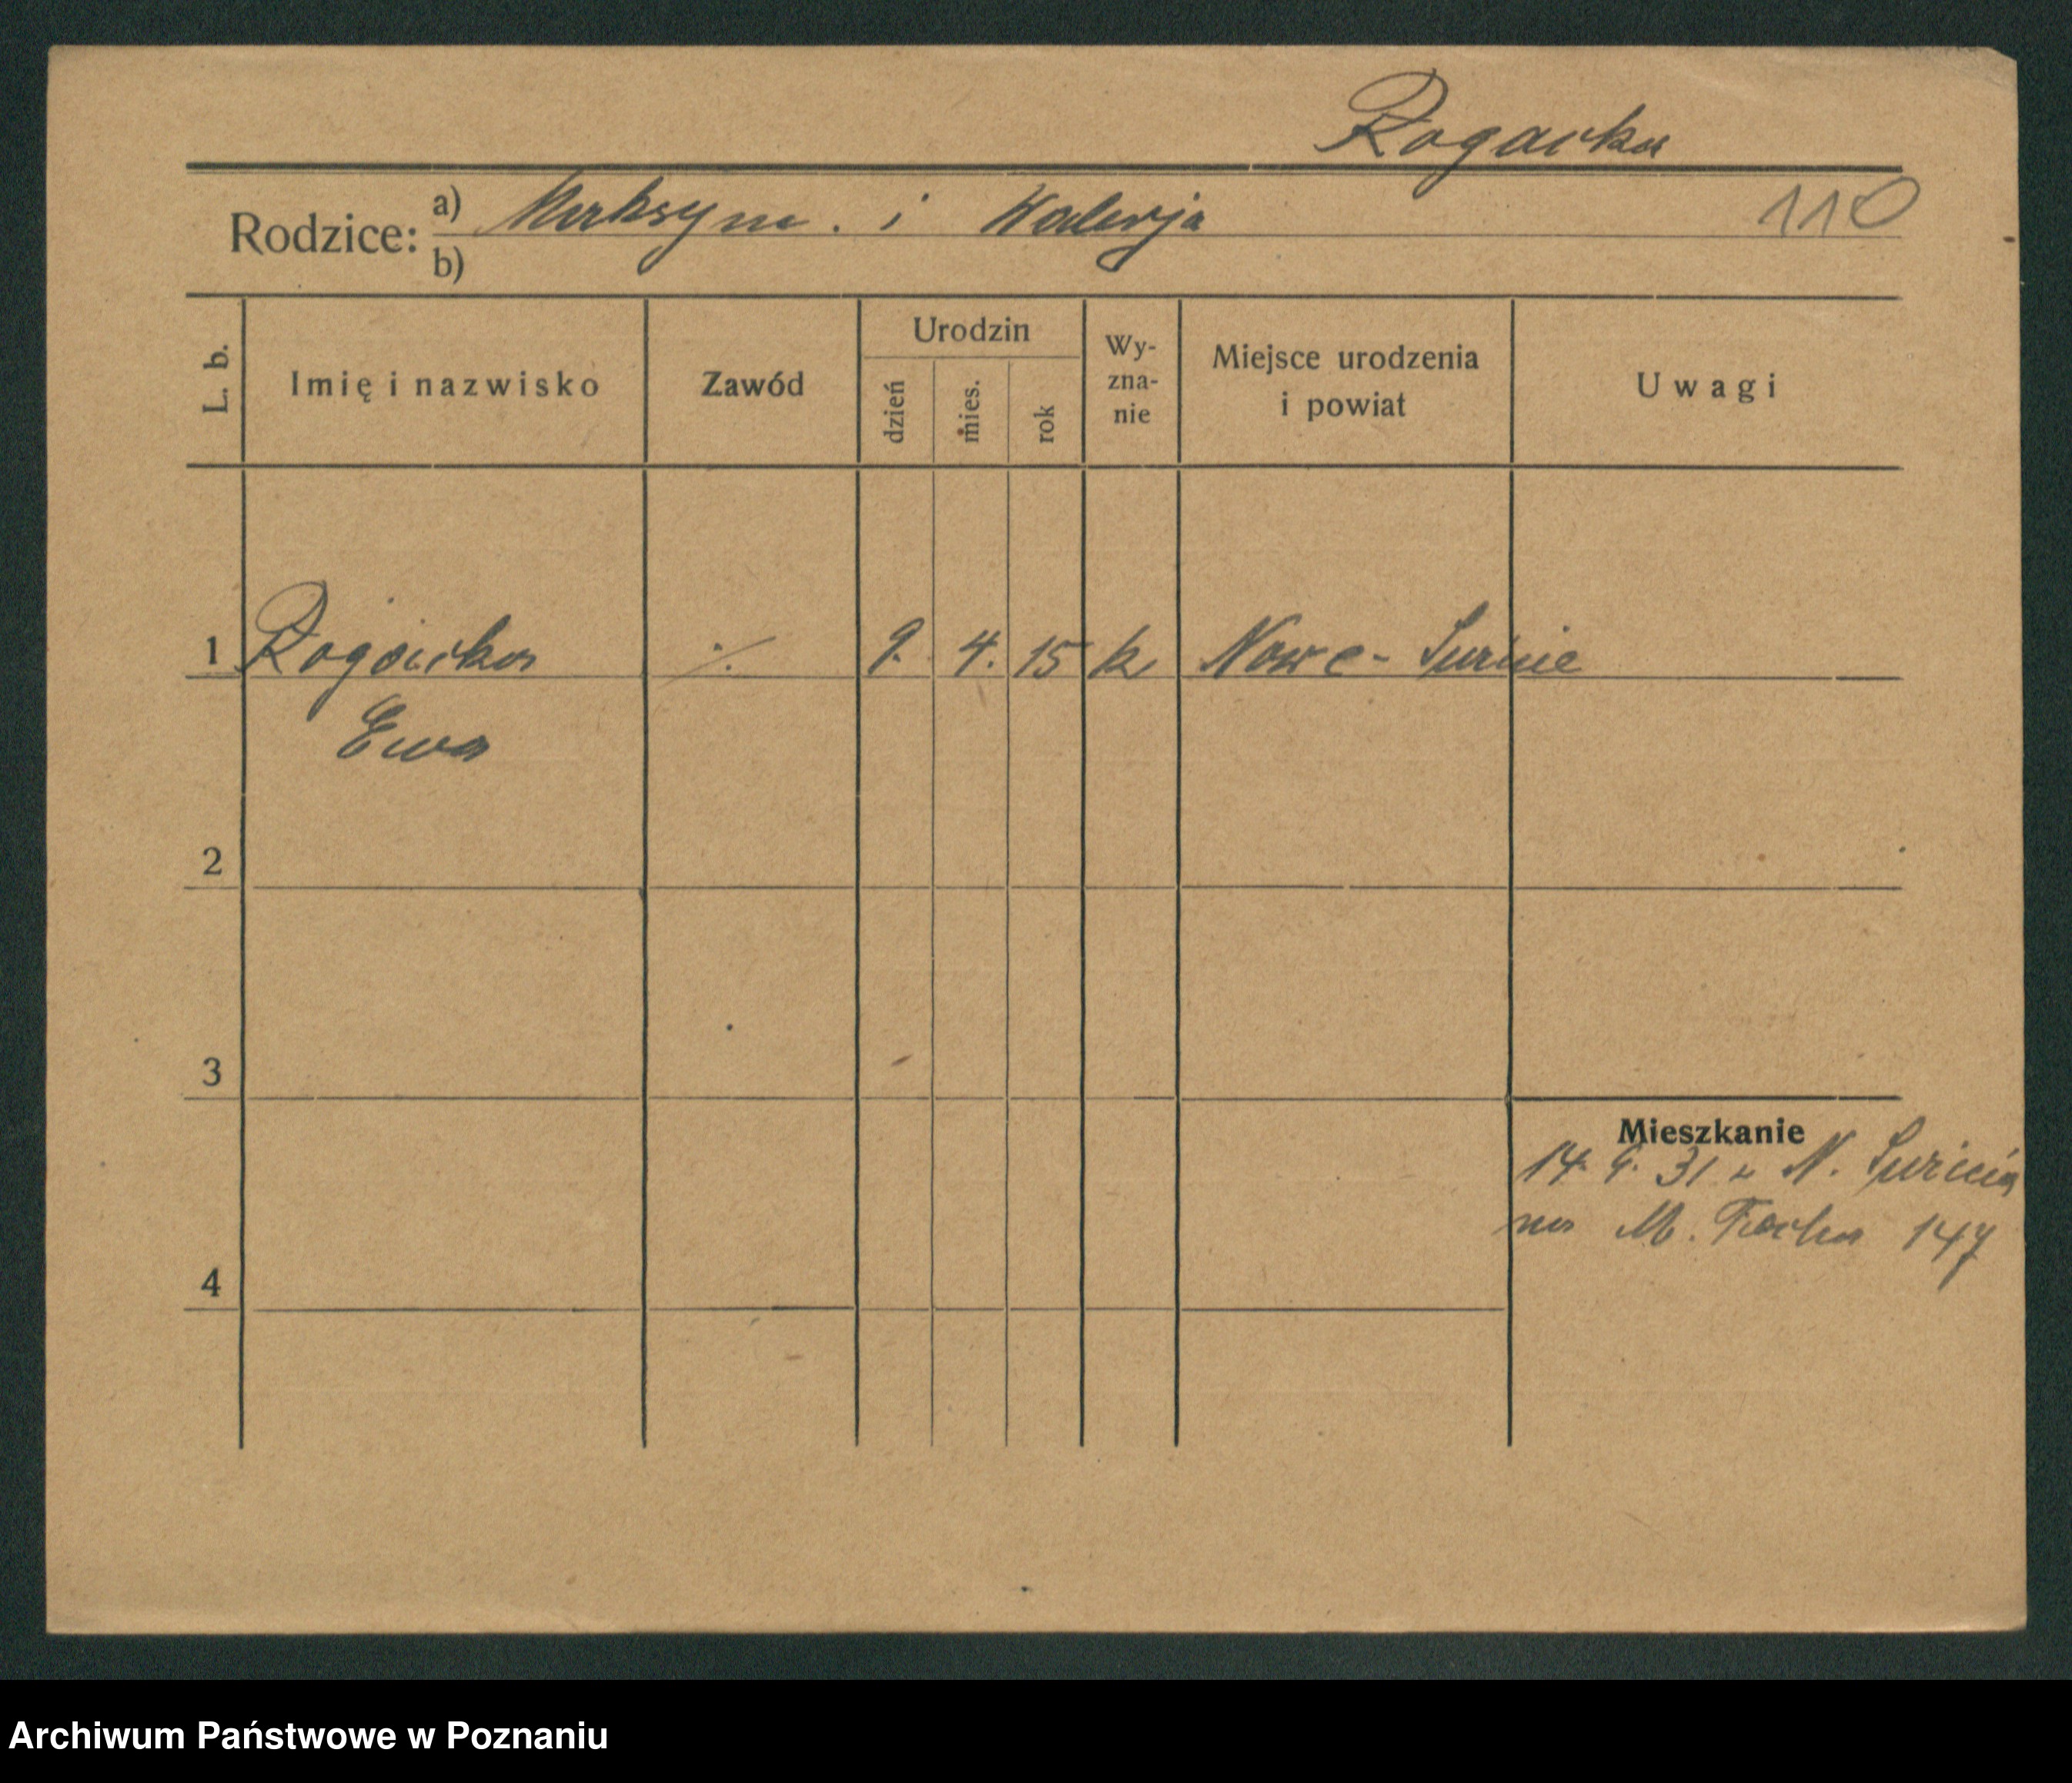 Rogacka
Rodzice: a) Maksym. i Walerja 110
b)
L. b. Imię i nazwisko Zawód Urodzin dzień mies. rok Wy-zna-nie Miejsce urodzenia i powiat Uwagi
1 Rogacka ·/. 9. 4. 15 k Nowe-
Ewa
2
3
Mieszkanie
14. 9. 31 z N.
na M. Focha 147
4
Archiwum Państwowe w Poznaniu